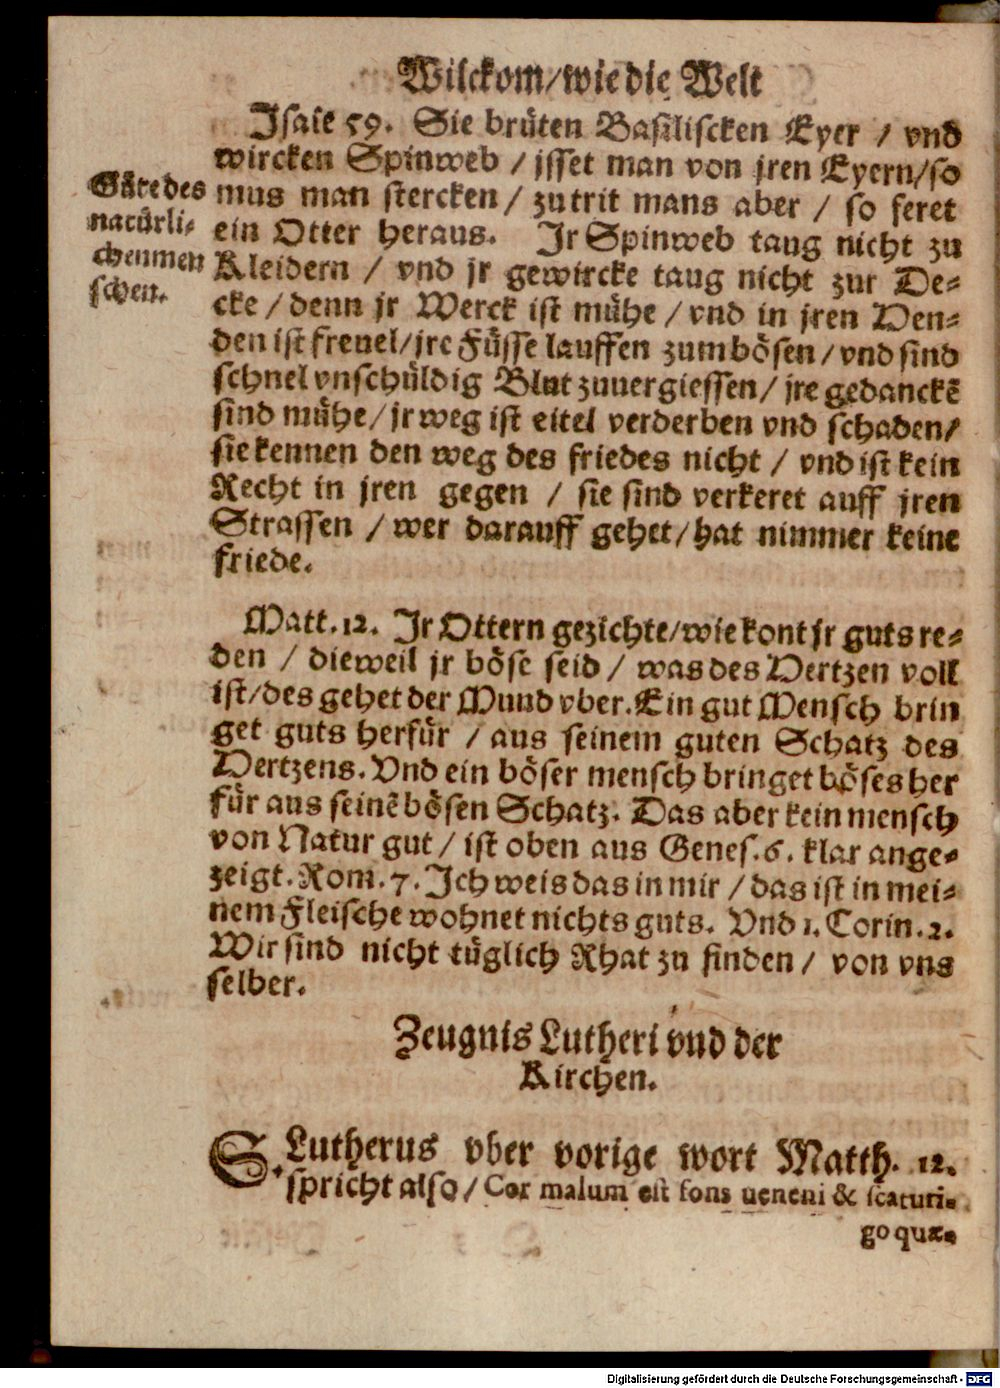 Wilckom/wie die Welt
Isaie 59. Sie brüten Basiliscken Eyer / vnd
wircken Spinweb / isset man von jren Eyern/so
mus man stercken / zutrit mans aber / so feret
ein Otter heraus. Jr Spinweb taug nicht zu
Kleidern / vnd jr gewircke taug nicht zur De-
cke / denn jr Werck ist mühe / vnd in jren Hen-
den ist freuel/jre Füsse lauffen zum bösen/vnd sind
schnel vnschüldig Blut zuuergiessen/ jre gedanckē
sind mühe/jr weg ist eitel verderben vnd schaden/
sie kennen den weg des friedes nicht / vnd ist kein
Recht in jren gegen / sie sind verkeret auff jren
Strassen / wer darauff gehet/hat nimmer keine
friede.
Güte des
natürli-
chen men
schen.
Matt.12. Jr Ottern gezichte/wie kont jr guts re-
den / dieweil jr böse seid / was des Hertzen voll
ist/des gehet der Mund vber.Ein gut Mensch brin
get guts herfür / aus seinem guten Schatz des
Hertzens. Vnd ein böser mensch bringet böses her
für aus seinē bösen Schatz. Das aber kein mensch
von Natur gut / ist oben aus Genes.6. klar ange-
zeigt.Rom.7.Ich weis das in mir / das ist in mei-
nem Fleische wohnet nichts guts. Vnd 1.Corin.2.
Wir sind nicht tüglich Rhat zu finden / von vns
selber.
Zeugnis Lutheri vnd der
Kirchen.
S. Lutherus vber vorige wort Matth. 12.
spricht also/ Cor malum est fons ueneni & scaturi-
go quæ-
Digitalisierung gefördert durch die Deutsche Forschungsgemeinschaft - DFG